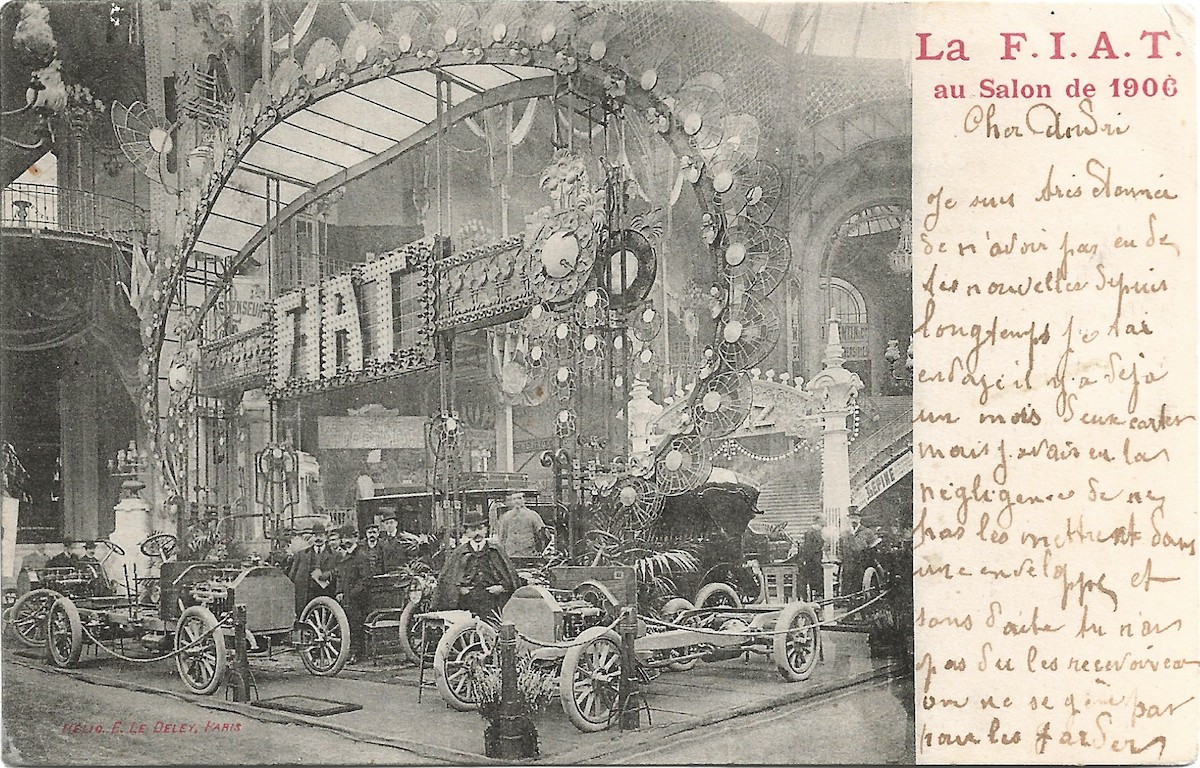 La F.I.A.T.
au Salon de 1906
Cher André
Je suis très étonnée
de n'avoir pas eu de
tes nouvelles depuis
longtemps je t'ai
envoyé il y a déjà
un mois deux cartes
mais j'avais eu la
négligence de ne
pas les mettrent dans
une enveloppe et
sans doute tu n'as
pas du les recevoir ca
on ne se gêne pas
pour les garder
FIAT
ENSEUR
HÉLIO. E. LE DELEY, PARIS